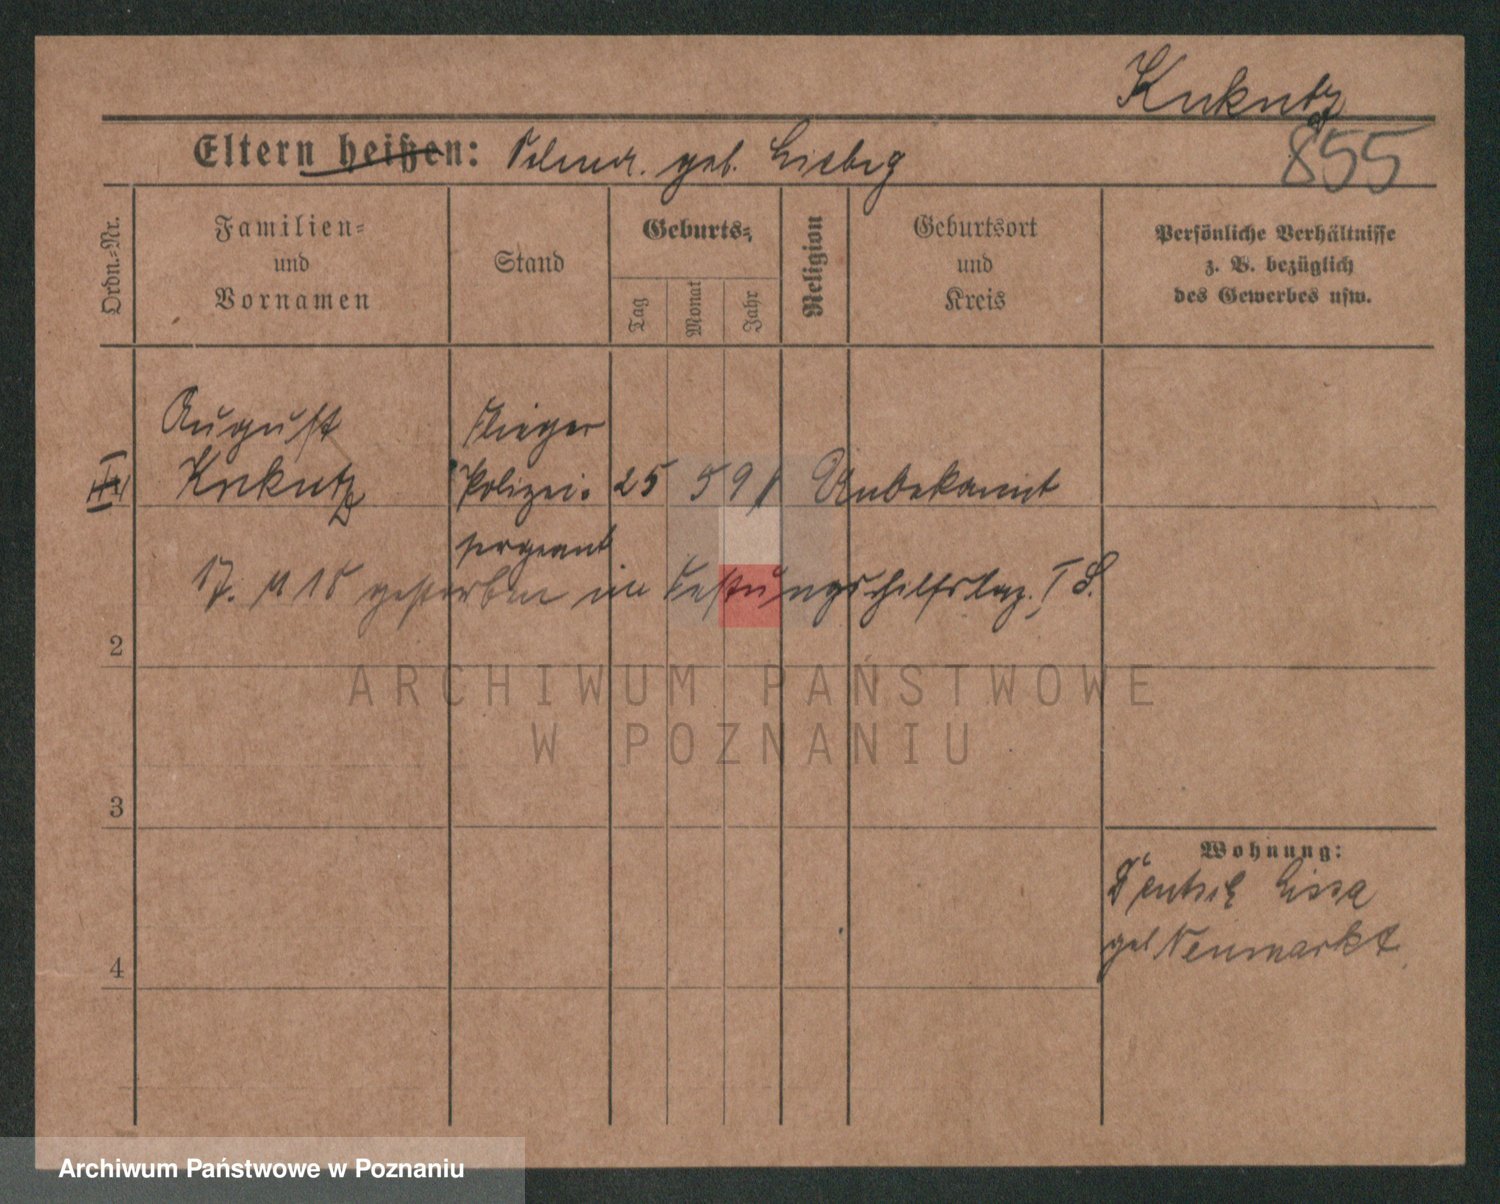 Knkutz
855
Eltern heißen: Selma. geb. Liebig
Ordn.-Nr.
Familien-
und
Vornamen
Stand
Geburts-
Tag
Monat
Jahr
Religion
Geburtsort
und
Kreis
Persönliche Verhältnisse
z. B. bezüglich
des Gewerbes usw.
August
Knkutz
Flieger
Polizei-
sergeant
25 5 91
Unbekannt
gestorben im Festungshilfslaz. I
2
3
4
Wohnung:
Deutsch Lissa
Neumarkt
ARCHIWUM PAŃSTWOWE
W POZNANIU
Archiwum Państwowe w Poznaniu